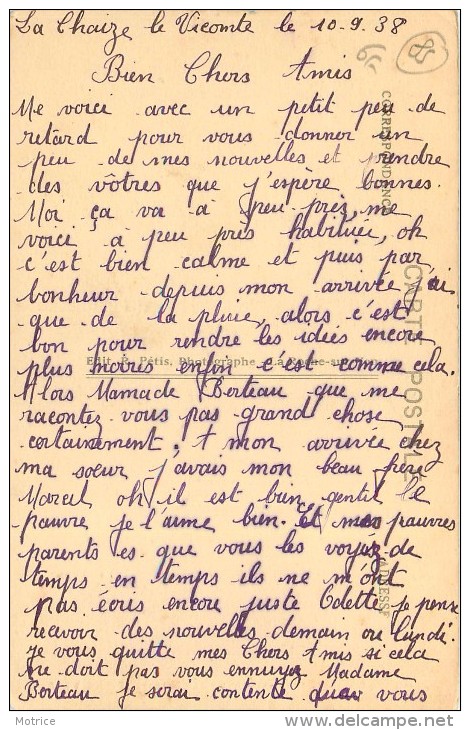 La Chaize le Vicomte le 10-9-38
85
Bien Chers Amis
CORRESPONDANCE
Me voici avec un petit peu de
retard pour vous donner un
peu de mes nouvelles et prendre
des vôtres que j'espère bonnes.
Moi ça va à peu près, me
voici à peu près habituée, oh
c'est bien calme et puis par
bonheur depuis mon arrivée j'ai
que de la pluie, alors c'est
bon pour rendre les idées encore
CARTE POSTALE
Edit. P. Pétis, Photographe
plus noires enfin c'est comme cela.
Alors Mamade Berteau que me
racontez vous pas grand chose
certainement. A mon arrivée chez
ma soeur j'avais mon beau frère
Marcel oh il est bien gentil le
pauvre je l'aime bien. Et mes pauvres
parents es que vous les voyez de
temps en temps ils ne m'ont
ADRESSE
pas écris encore juste Odette je pense
recevoir des nouvelles demain ou lundi.
Je vous quitte mes Chers Amis si cela
ne doit pas vous ennuyez Madame
Berteau je serai contente vous
Motrice
www.delcampe.net